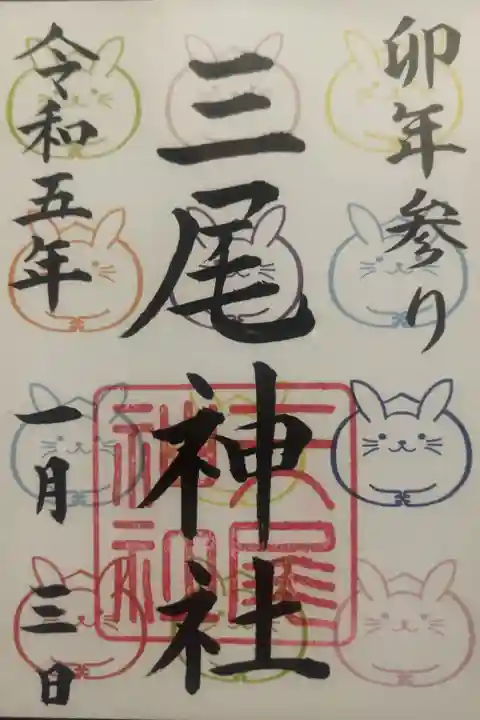 卯年参り
三尾神社
令和五年
一月三日
三尾
神社